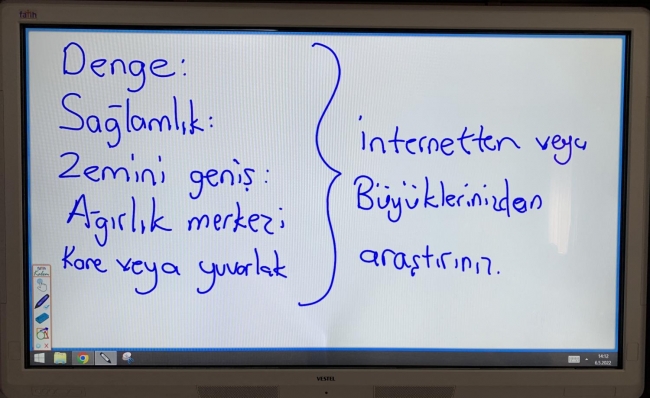 Denge:
Sağlamlık:
Zemini geniş:
Ağırlık merkezi
Kare veya yuvarlak
internetten veya
Büyüklerinizden
araştırınız.
14:52
6.5.2022
VESTEL